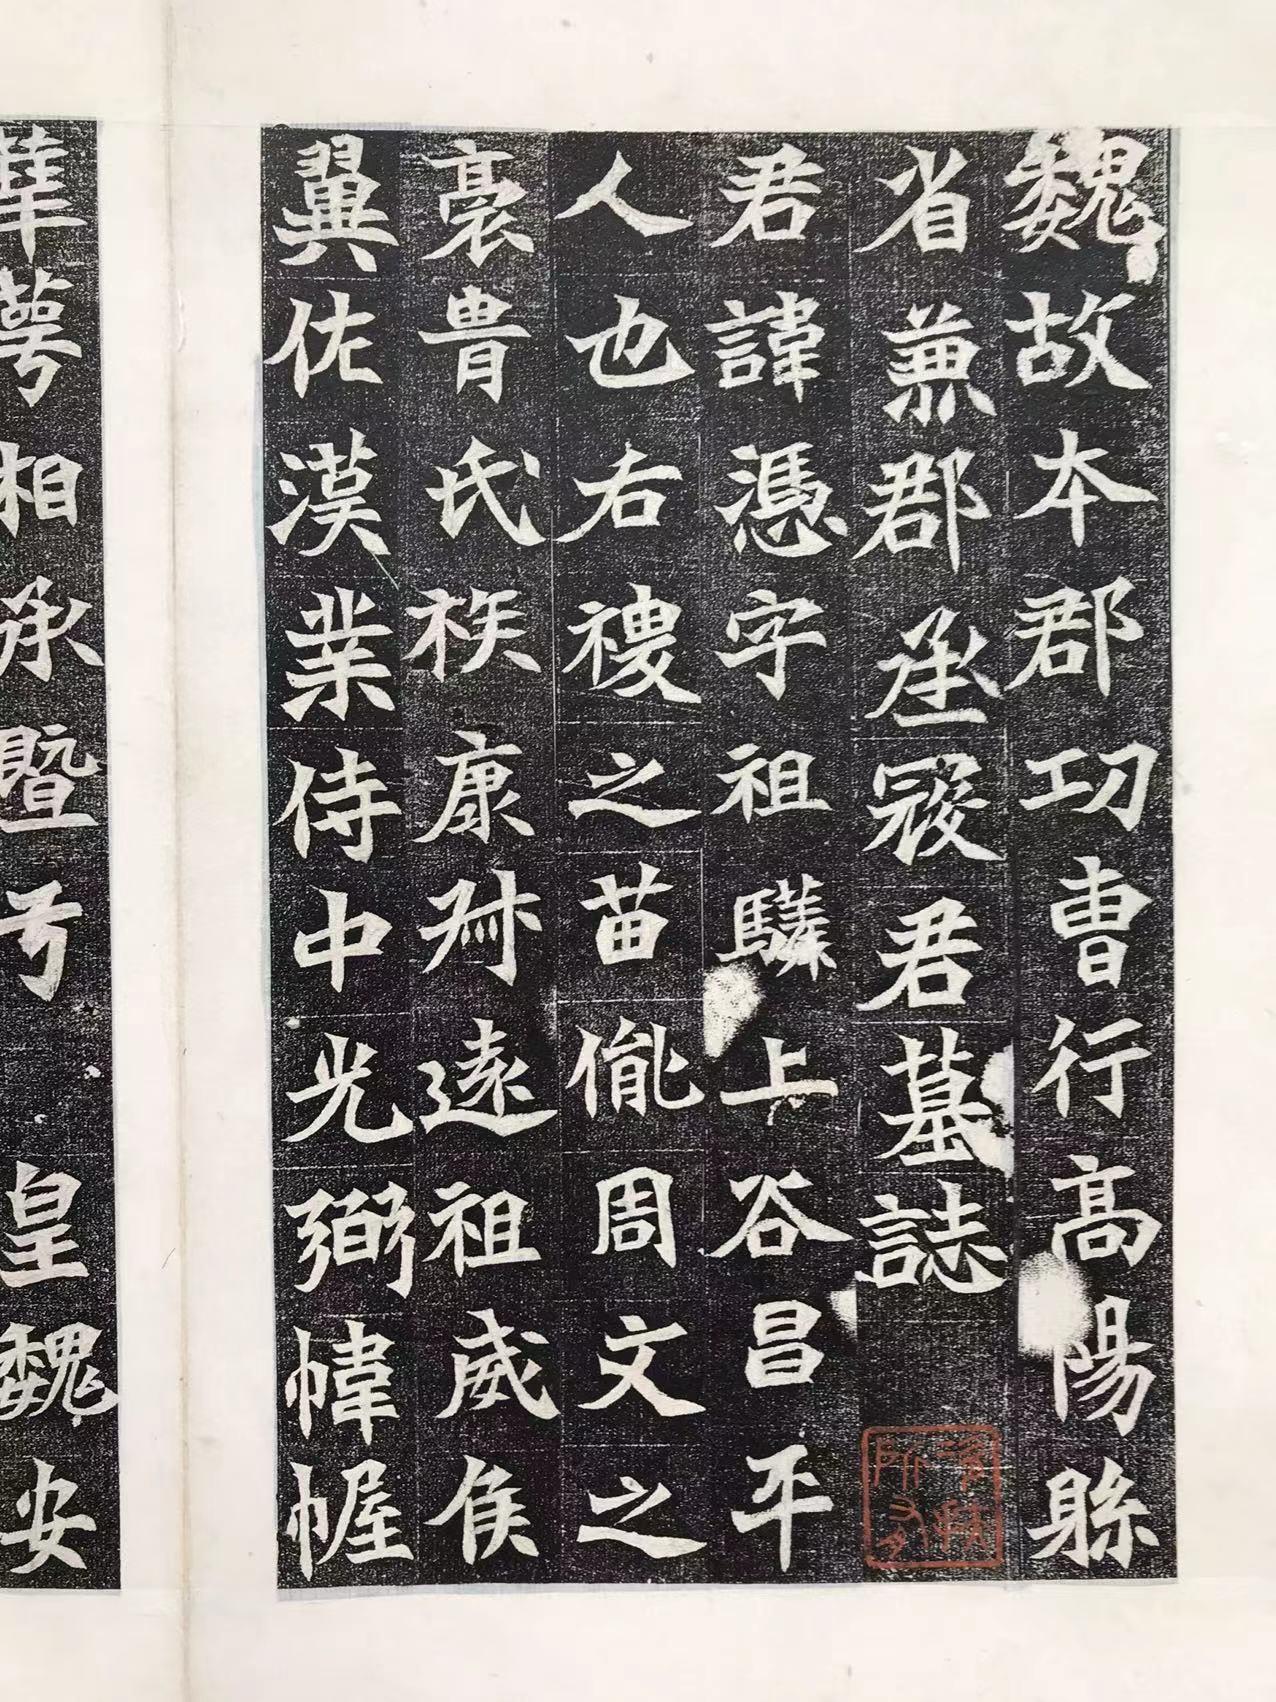 魏故本郡功曹行高陽縣
省兼郡丞寇君墓誌
君諱憑字祖上谷昌平
人也右禝之苗胤周文之
裔胄氏族康叔遠祖威侯
翼佐漢業侍中光弼幃幄
華萼相承暨号皇魏安